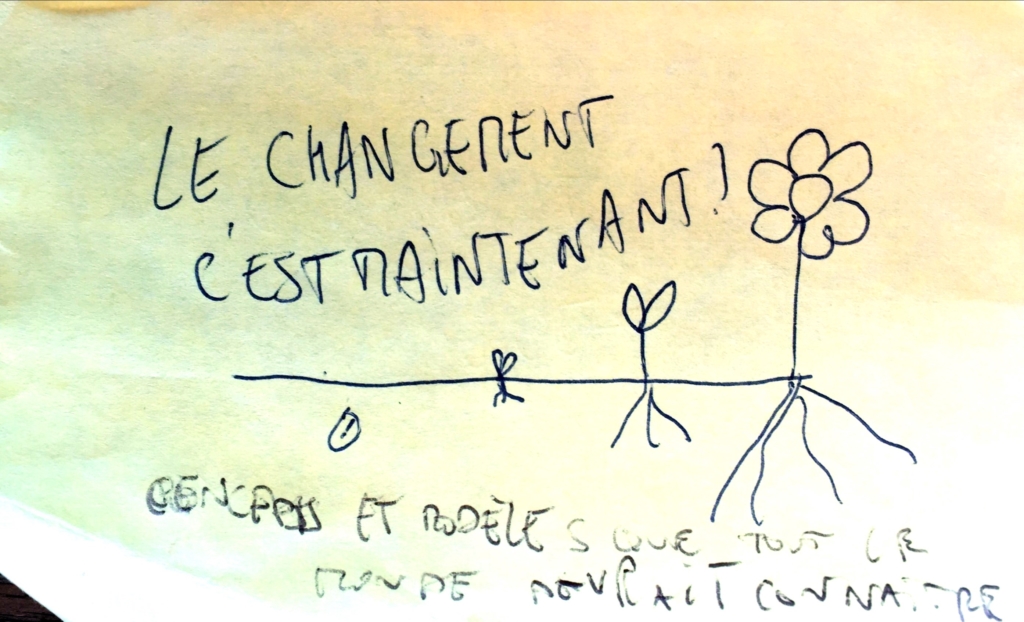 LE CHANGEMENT
C'EST MAINTENANT!
CONCEPTS ET MODÈLES QUE TOUT LE
MONDE DEVRAIT CONNAÎTRE